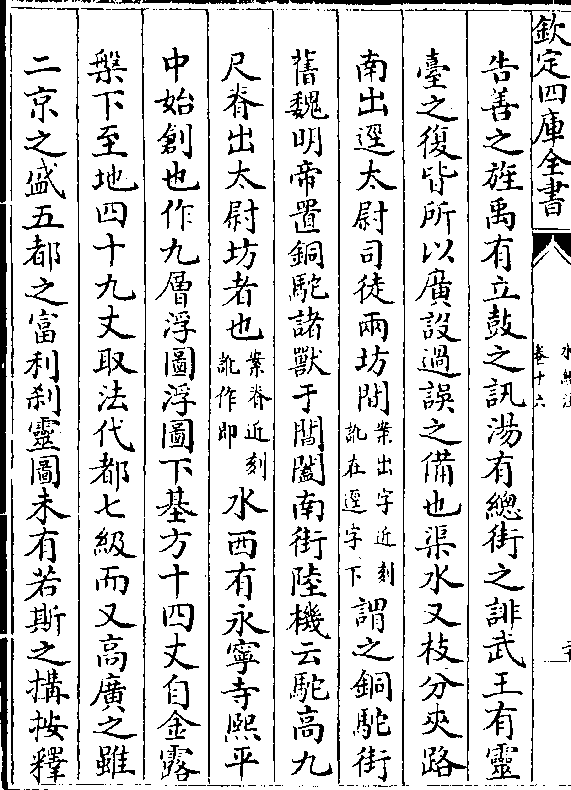 欽定四庫全書
卷十六
告善之旌禹有立鼓之訊湯有總街之誹武王有靈
臺之復皆所以廣設過誤之備也渠水又枝分夾路
南出逕太尉司徒兩坊閒案出字近刻訛在逕字下謂之銅駝街
舊魏明帝置銅駝諸獸于閶闔南街陸機云駝高九
尺脊出太尉坊者也案脊近刻訛作即水西有永寧寺熙平
中始創也作九層浮圖浮圖下基方十四丈自金露
槃下至地四十九丈取法代都七級而又高廣之雖
二京之盛五都之富利刹靈圖未有若斯之搆按釋